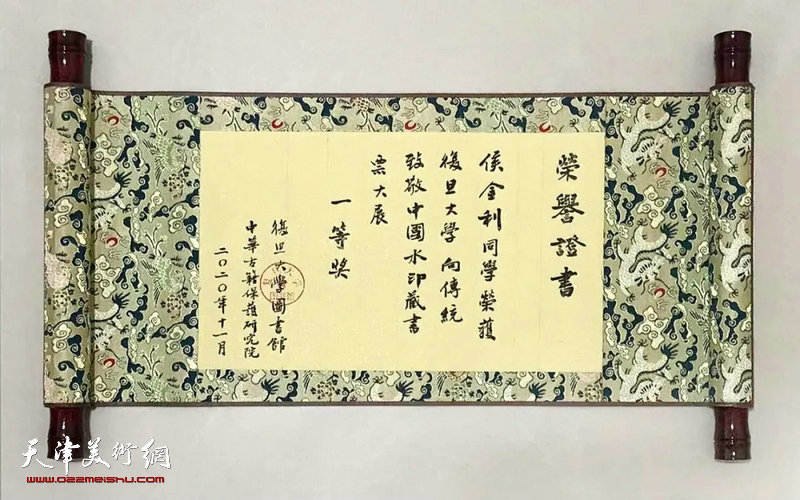 榮譽證書
侯金利同學榮獲
復旦大學向傳統
致敬中國水印藏書
票大展
一等奖
復旦大學圖書館
中華古籍保護研究院
二〇二〇年十一月
天津美術網
www.022meishu.com